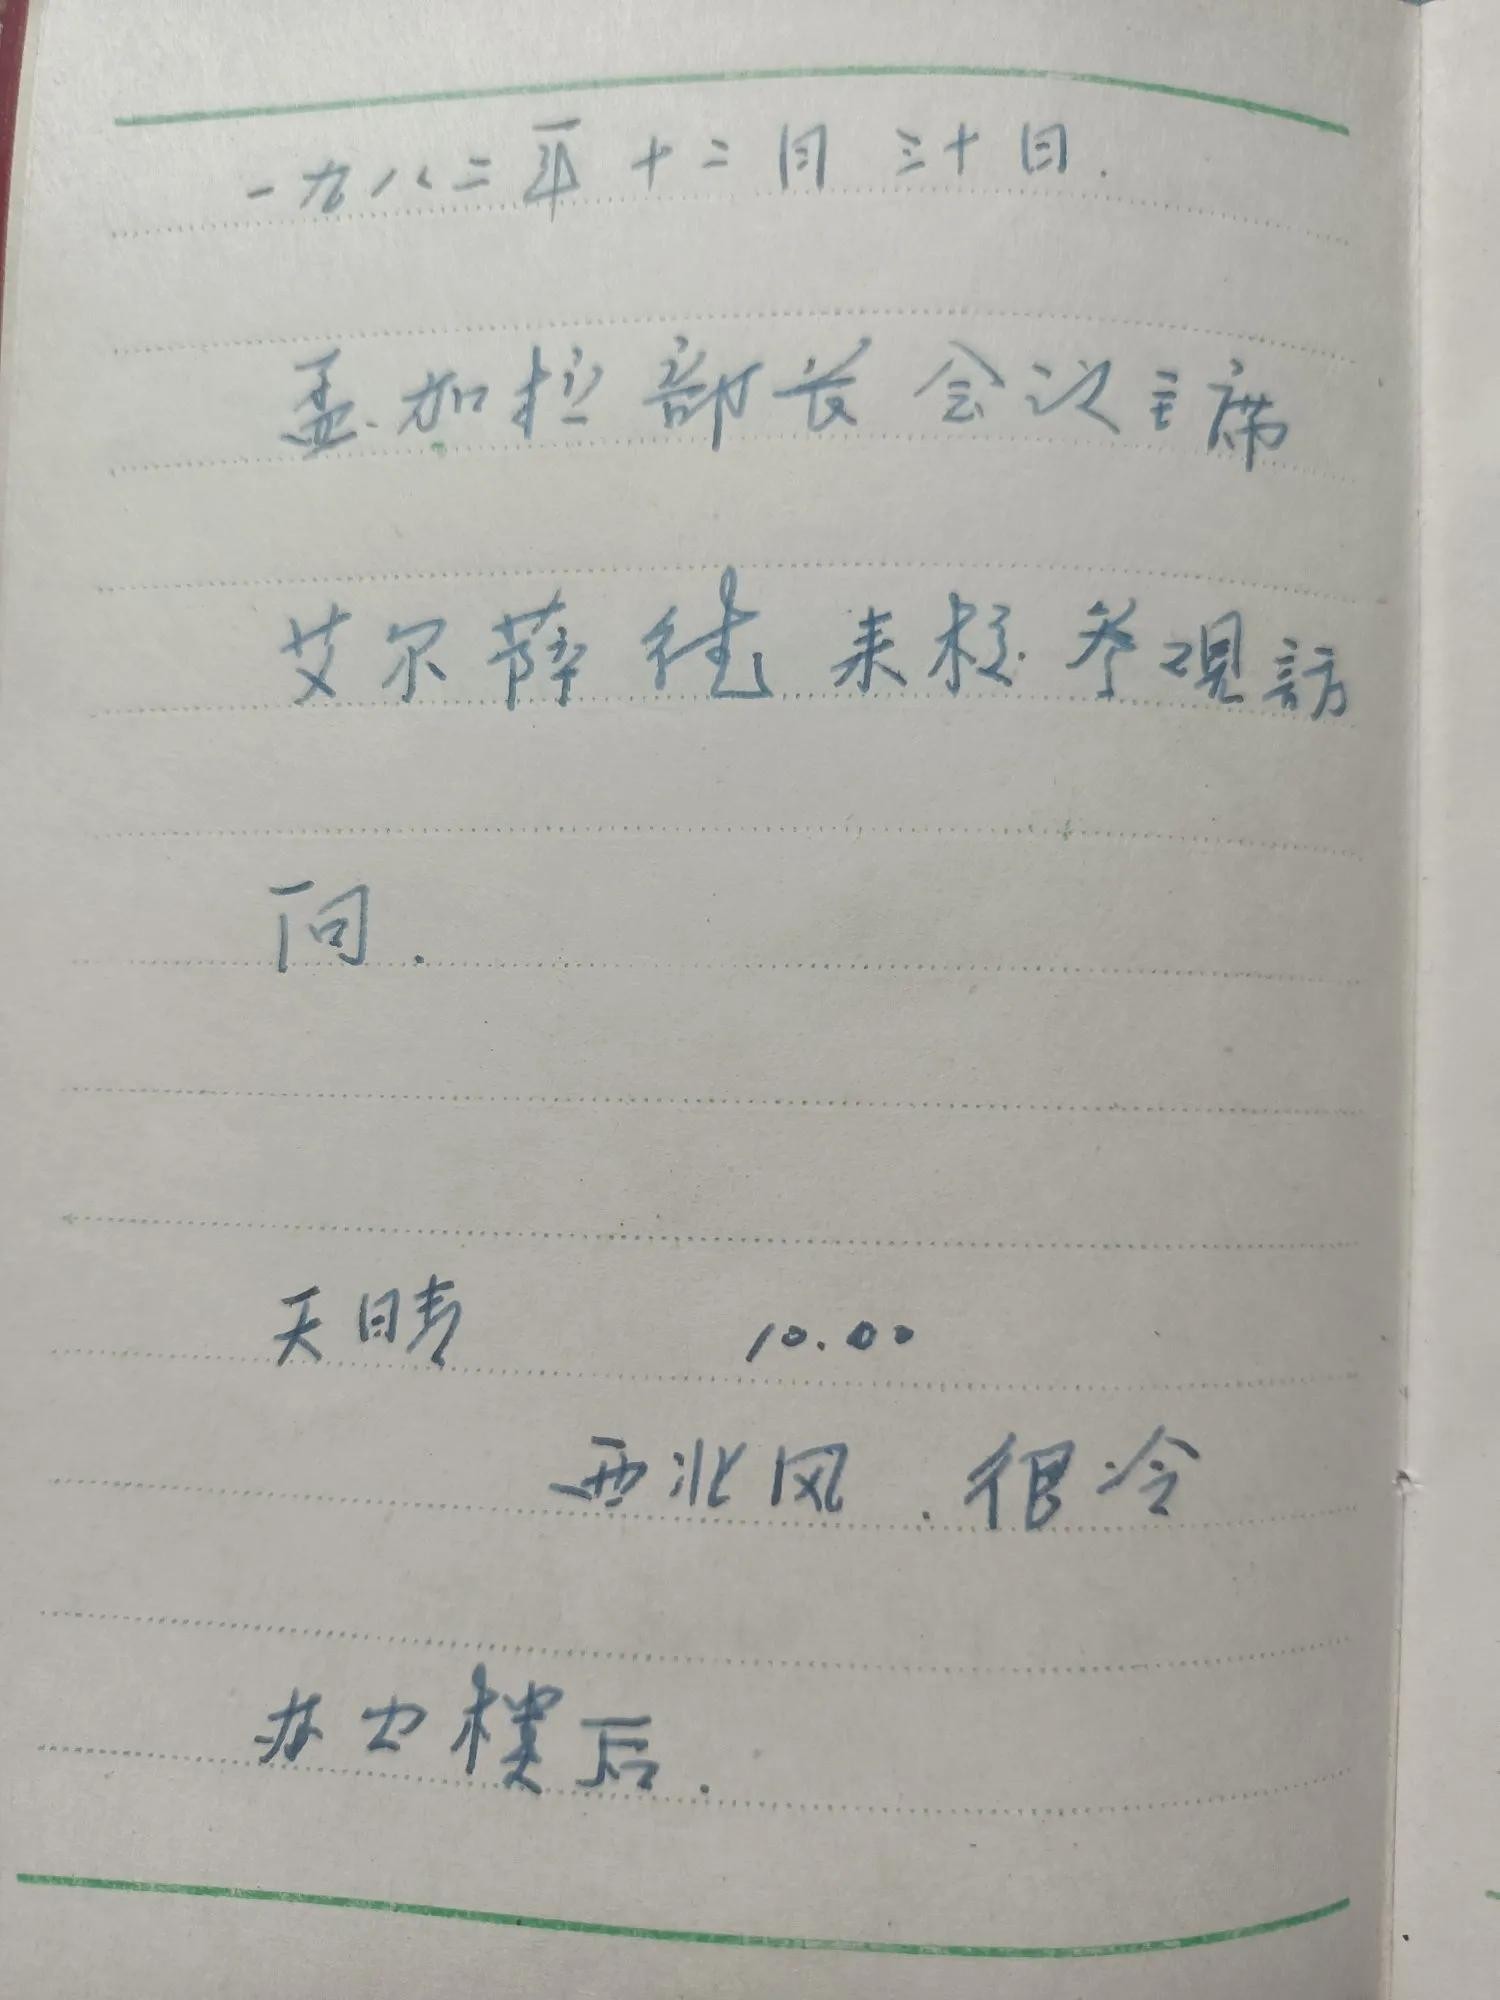 一九八二年十二月三十日.
孟加拉部长会议主席
艾尔薛德来校参观訪
问.
天晴 10.00
西北风.很冷
办公楼后.